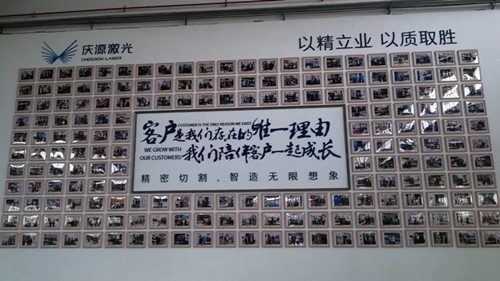 庆源激光
以精立业 以质取胜
CUSTOMER IS THE ONLY REASON WE EXIST
客户是我们存在的唯一理由
WE GROW WITH
OUR CUSTOMERS
我们陪伴客户一起成长
精密切割，智造无限想象